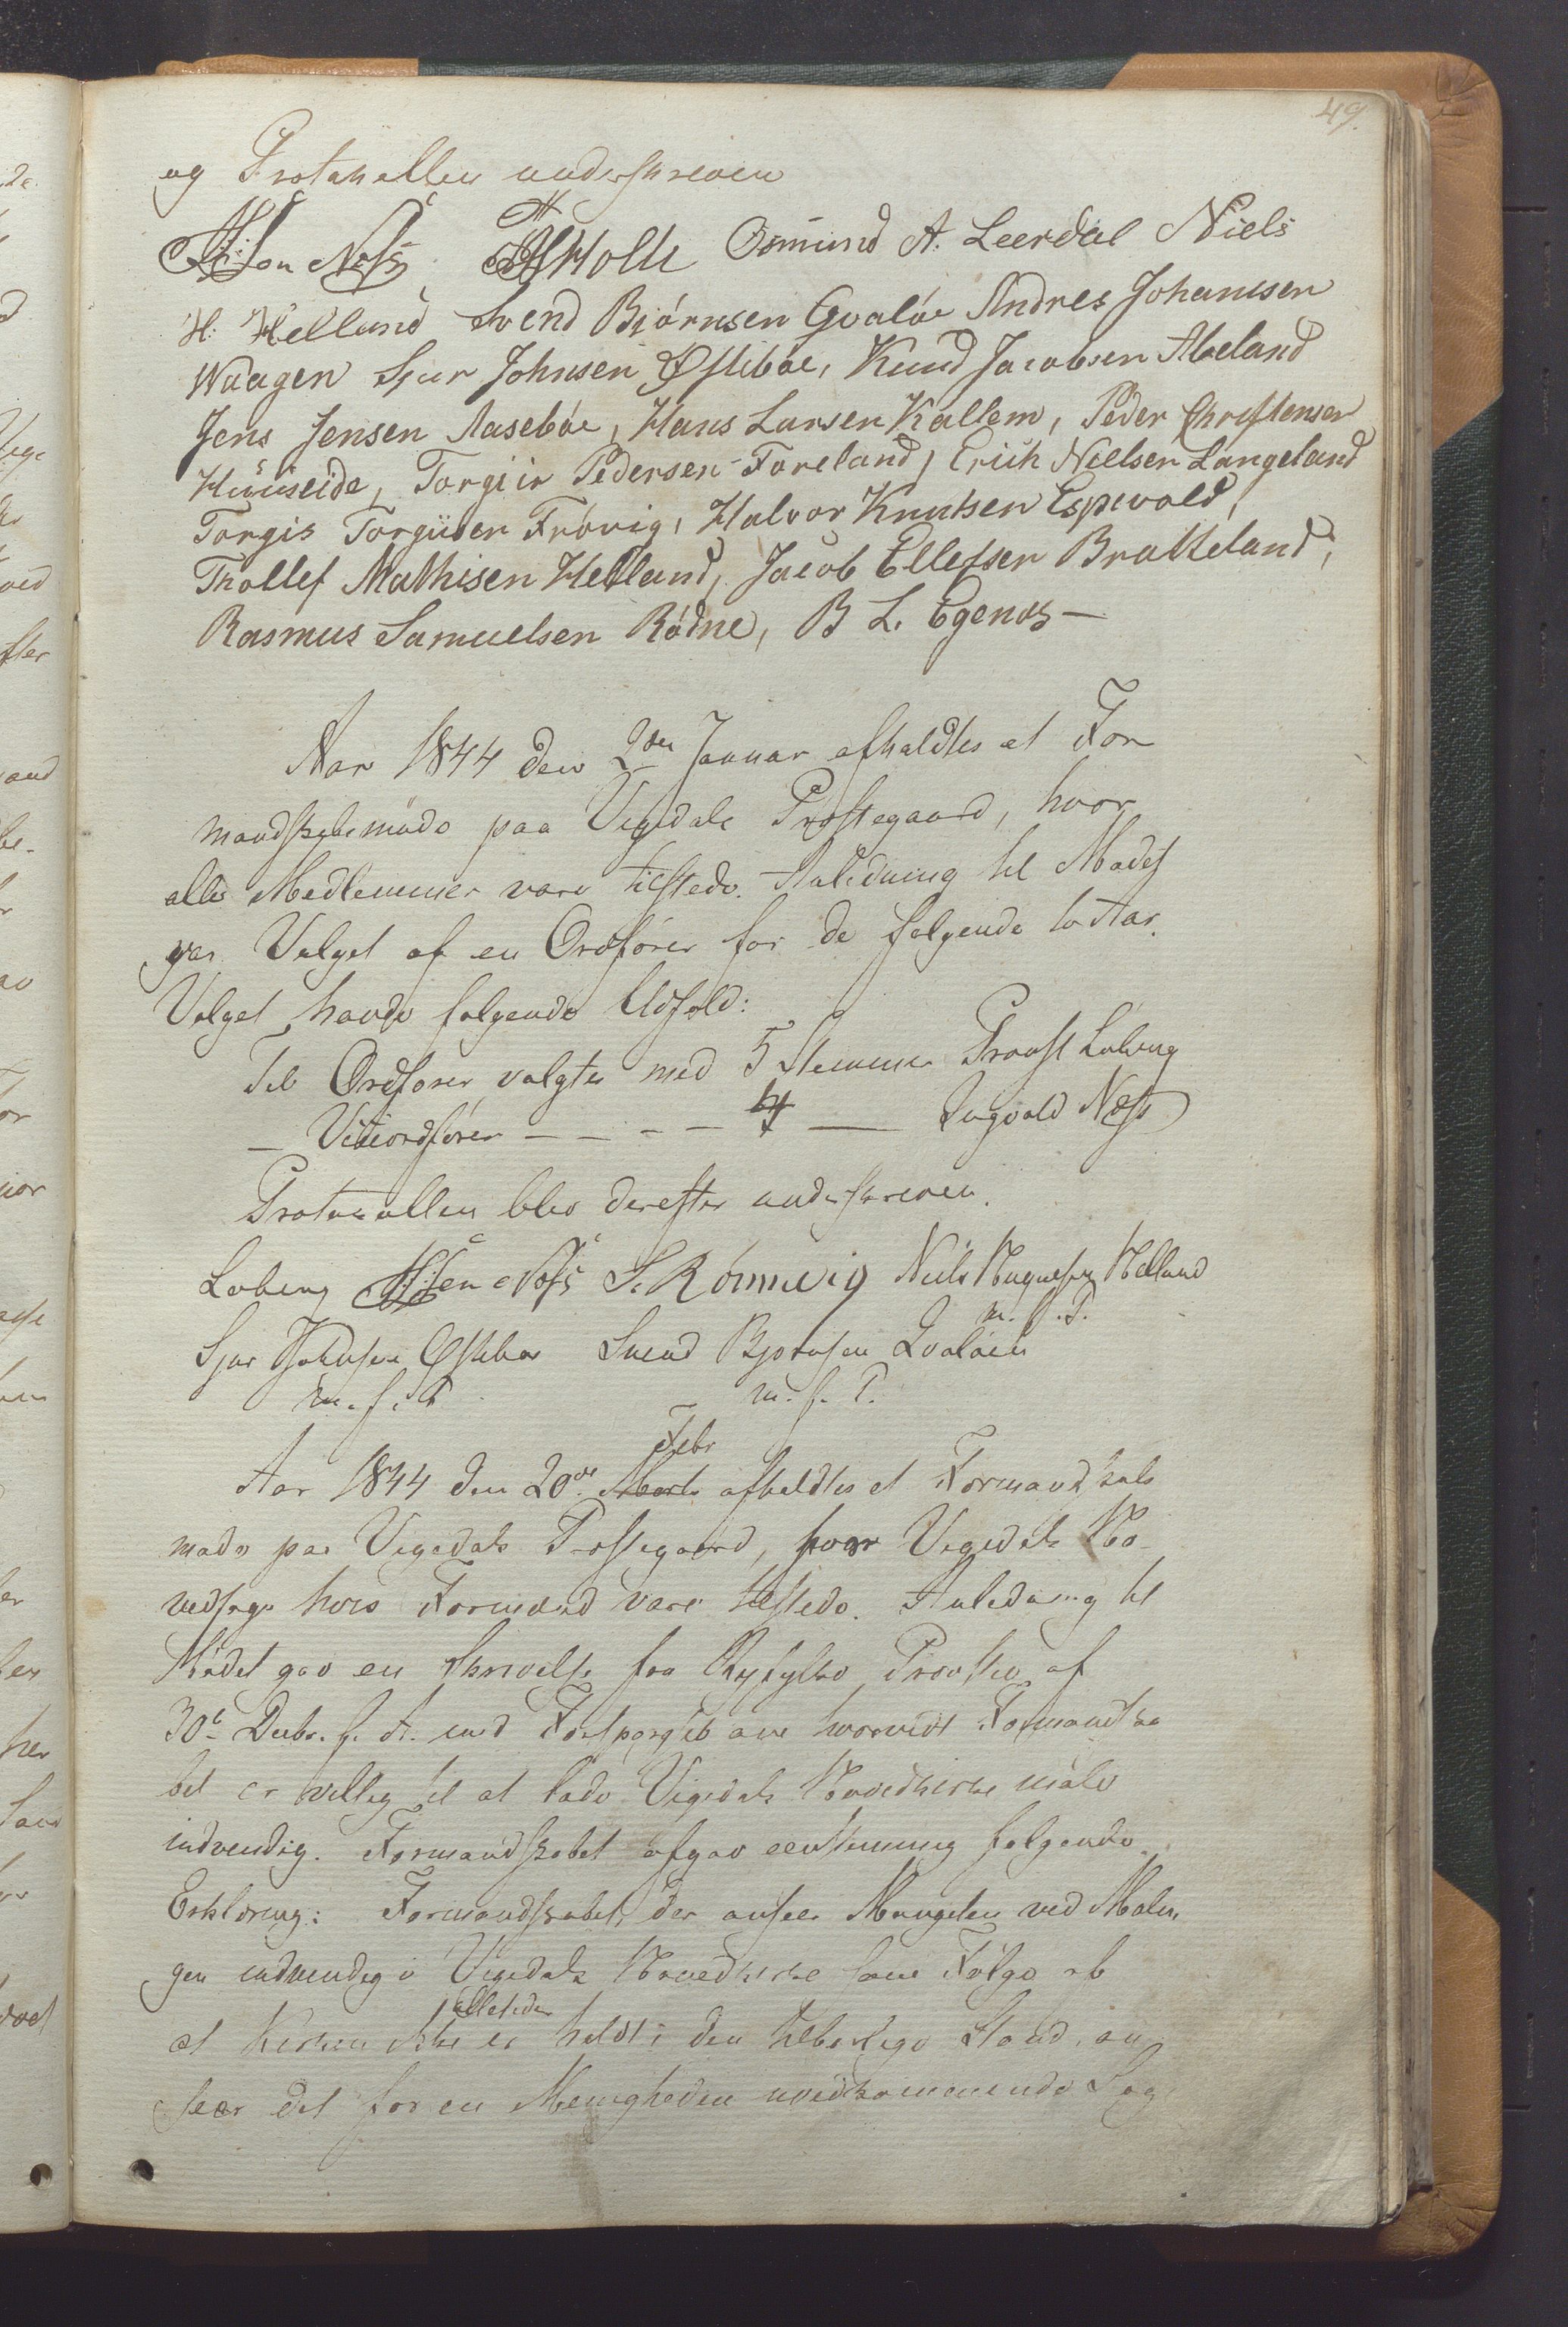 49.
og Protocollen underskreven
Osmund A. Leerdal Niels
H. Helland Svend Bjørnsen Gvaløe Andres Johannsen
Waagen Sjur Johnsen Østebøe, Knud Jacobsen Aleland
Jens Jensen Aasebøe, Hans Larsen Kallem, Peder Christensen
Huuseide, Torgier Pedersen Foreland, Erich Nielsen Langeland
Torgis Torgiisen Frøvig, Halvor Knutsen Espevold,
Thollef Mathisen Helland, Jacob Ellefsen Bratteland,
Rasmus Samuelsen Rødne, B L. Egenæs —
Aar 1844 den 2den Januar afholdtes et For
mandskabsmøde paa Vigedals Præstegaard, hvor
alle Medlemmer vare tilstede. Anledning til Mødet
var Valget af en Ordfører for de følgende to Aar.
Valget havde følgende Udfald:
Til Ordfører valgtes med 5 Stemmer Provst Løberg
— Viceordfører — — — — 4 — Ingvald Næss
Protocollen blev derefter underskreven.
Løberg S. Rønnevig Niels Haguesen Helland
m. f. P.
Sjur Johnsen Østebøe Svend Bjørnsen Qvaløen
m. f. P m. f. P.
Febr
Aar 1844 den 20de Marts afholdtes et Formandskabs
møde paa Vigedals Præstegaard, hvor Vigedals Ho-
vedsogns Formænd vare tilstede. Anledning til
Mødet gav en Skrivelse fra Ryfylke Provstie af
30te Decbr. f. A. med Forespørgsel om hvorvidt Formandska
bet er villig til at lade Vigedals Hovedkirke male
indvendig. Formandskabet afgav eenstemmig følgende
Erklæring: Formandskabet, der anseer Mangelen ved Malin
gen indvendig i Vigedals Hovedkirke som Følge af
alletider
at Kirken ikke er holdt i den tilbørlige Stand, an
seer det for en Menigheden uvedkommende Sag